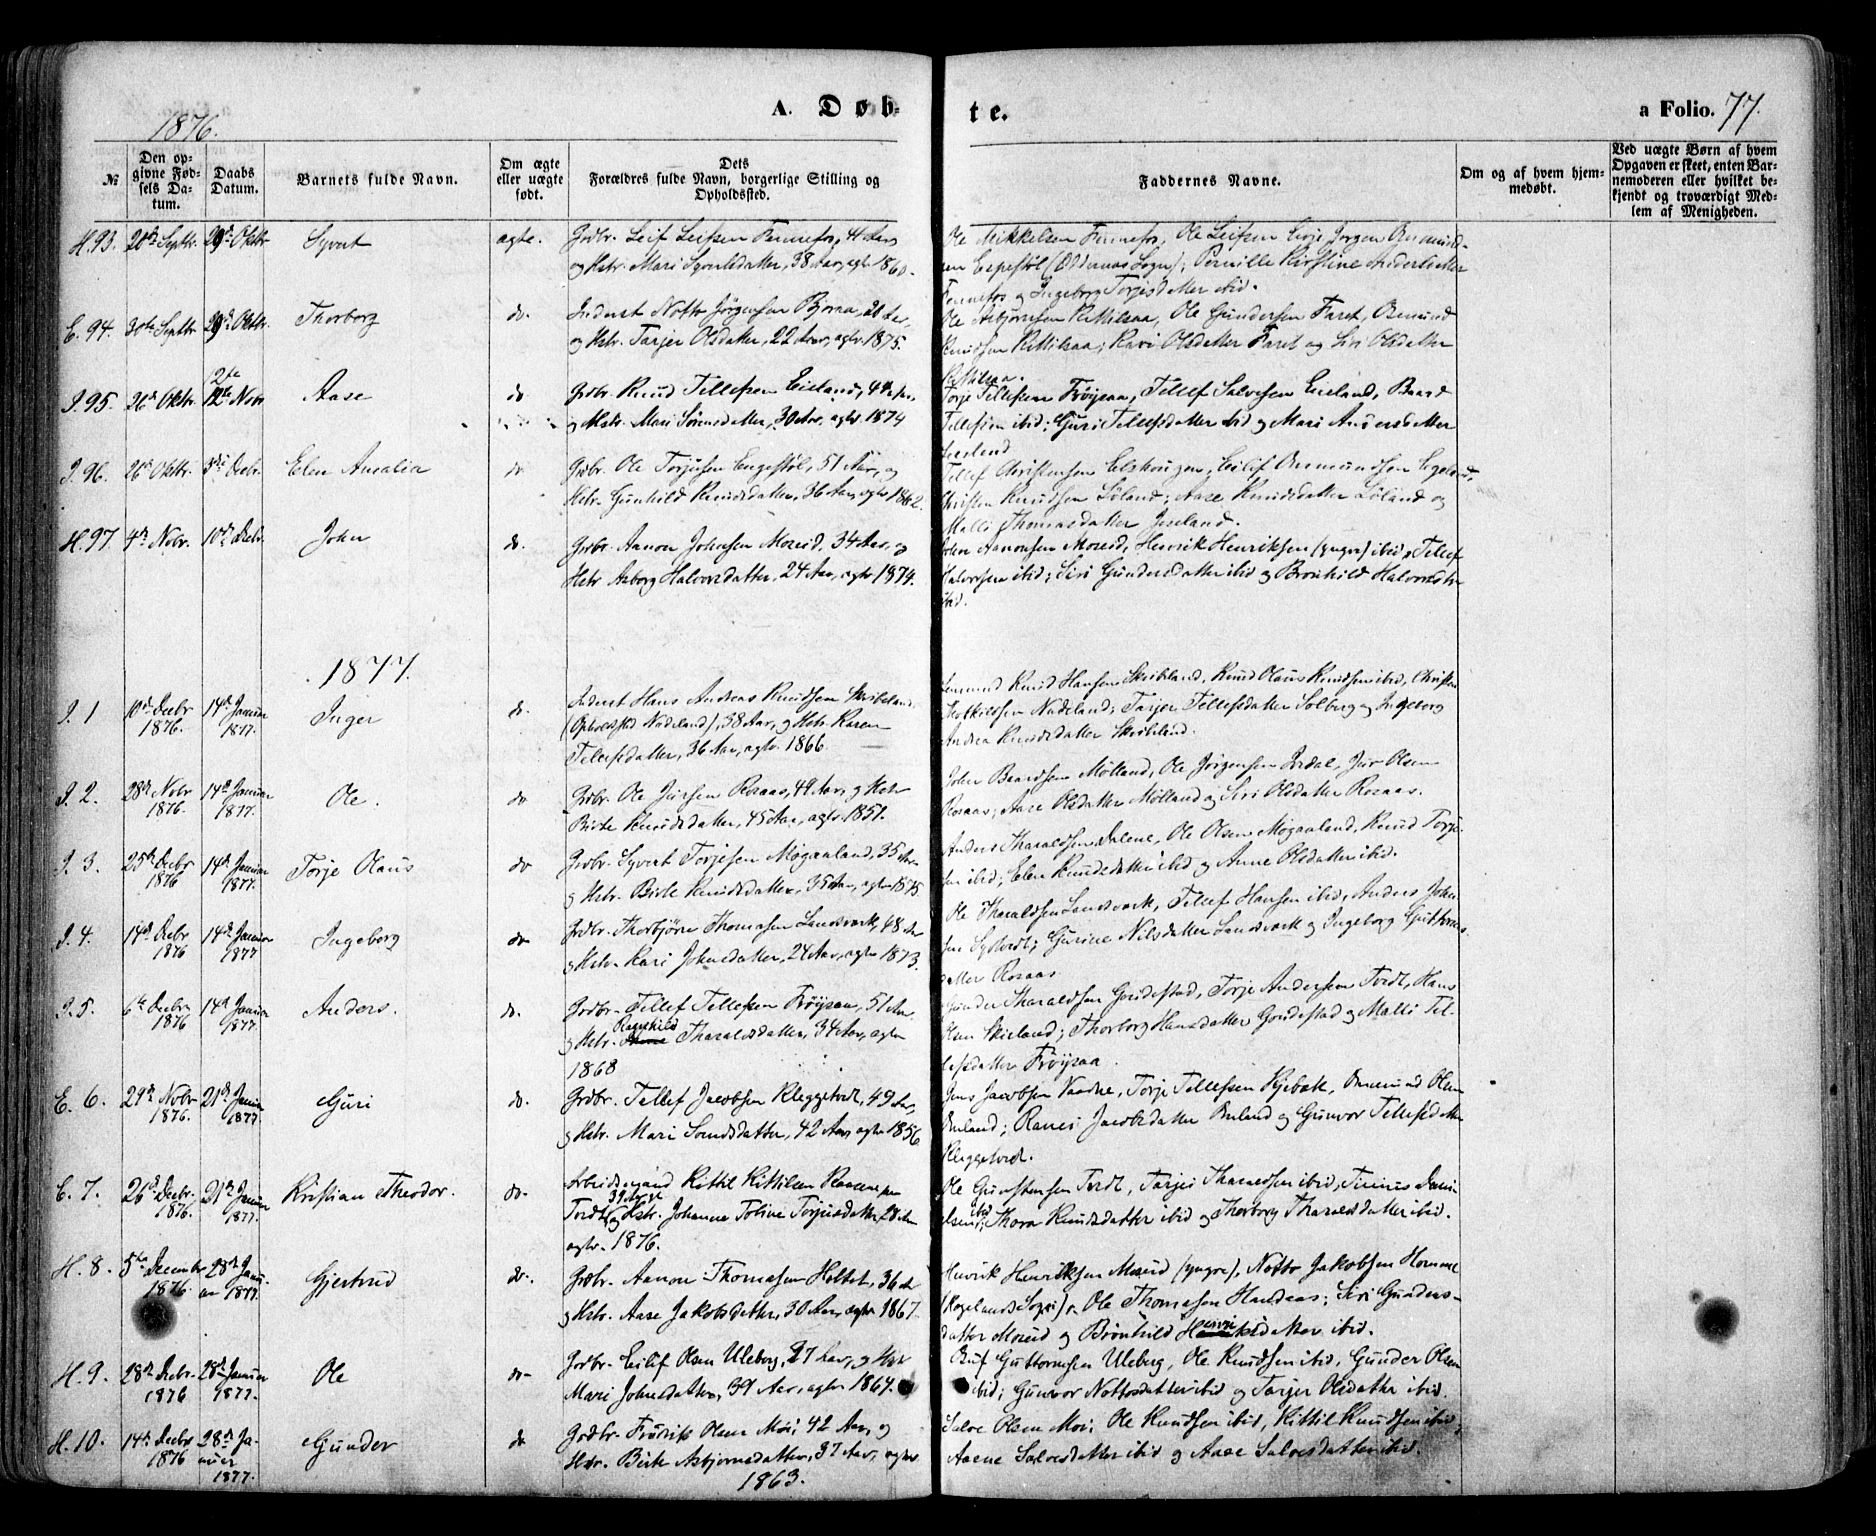 A. Døb-
te.
a Folio. 77.
1876.
№
Den opgivne Fødsels Datum.
Daabs Datum.
Barnets fulde Navn.
Om ægte eller uægte født.
Dets Forældres fulde Navn, borgerlige Stilling og Opholdssted.
Faddernes Navne.
Om og af hvem hjemmedøbt.
Ved uægte Børn af hvem Opgaven er skeet, enten Barnemoderen eller hvilket bekjendt og troværdigt Medlem af Menigheden.
H. 93. 20de Septbr. 29de Oktbr Syvert ægte. Grdbr. Leif Leifsen Fennefos, 41 Aar,
og Hstr. Mari Syvertsdatter, 38 Aar, agtv. 1860.
Ole Mikkelsen Fennefos, Ole Leifsen ibid, Jørgen Osmund-
sen Espestøl (Oddernes Sogn); Pernille Kirstine Andersdatter
Fennefos og Ingeborg Torjesdatter ibid.
E. 94. 30te Septbr. 29de Oktbr. Thorborg do. Inderst Notto Jörgensen Bjorna, 21 Aar,
og Hstr. Tarjer Olsdatter, 22 Aar, agtv. 1875.
Ole Asbjørnsen Kittilsaa, Ole Gundersen Faret, Osmund
Knudsen Kittilsaa; Kari Olsdatter Faret og Siri Olsdatter
Kittilsaa.
I. 95. 26de Oktbr 12te Novr Aase do Grdbr. Knud Tellefsen Eieland, 44 Aar,
og Hstr. Mari Sörensdatter, 30 Aar, agtv. 1874
Torje Tellefsen Frøysaa, Tellef Salvesen Eieland, Baard
Tellefsen ibid; Guri Tellefsdatter ibid og Mari Andersdatter
Eieland
I. 96. 26de Oktbr. 3die Decbr. Elen Amalia do Grdbr. Ole Torjusen Engestøl, 51 Aar, og
Hstr. Gunhild Knudsdatter, 36 Aar, agtv 1862.
Tellef Christensen, Eilif Osmundsen
Christen Knudsen Löland; Aase Knudsdatter Löland og
Malli Thomasdatter Jseland.
H. 97. 4de Nobr. 10de Decbr. John do. Grdbr. Aanon Johnsen Moseid, 34 Aar, og
Hstr Asborg Halvorsdatter, 24 Aar, agtv 1874.
John Aanonsen Moseid, Henrik Henriksen (yngre) ibid, Tellef
Halvorsen ibid; Siri Gundersdatter ibid og Brønhild Halvorsdtr
ibid.
1877.
I. 1 10de Decbr 1876. 14de Januar 1877. Inger do. Inderst Hans Andreas Knudsen Skribeland
(Opholdssted Nadeland), 38 Aar, og Hstr. Karen
Tellefsdatter, 36 Aar, agtv. 1866.
Knud Hansen Skribeland, Knud Olaus Knudsen ibid, Christen
Nadeland; Tarjer Tellefsdatter Solberg og Ingeborg
Andrea Knudsdatter Skribeland.
I. 2. 28de Nobr 1876. 14de Januar 1877. Ole. do Grdbr. Ole Jursen Rosaas, 49 Aar, og Hstr
Birte Knudsdatter, 45 Aar, agtv. 1851.
John Baardsen Mølland, Ole Jörgensen Ardal, Jur Olsen
Rosaas; Aase Olsdatter Mølland og Siri Olsdatter Rosaas.
I. 3. 25de Decbr 1876 14de Januar 1877. Torje Olaus do Grdbr. Syvert Torjesen Møgaaland, 35 Aar
og Hstr. Birte Knudsdatter, 35 Aar, agtv 1875
Anders Tharaldsen Dalene, Ole Olsen Møgaaland, Knud Torje-
sen ibid; Elen Knudsdatter ibid og Anne Olsdatter ibid.
I. 4. 14de Decbr 1876 14de Januar 1877 Ingeborg do Grdbr. Thorbjörn Thomasen Landsværk, 48 Aar
og Hstr. Kari Johnsdatter, 24 Aar, agtv 1873.
Ole Tharaldsen Landsværk, Tellef Hansen ibid, Anders John-
sen; Gurine Nilsdatter Landsværk og Ingeborg Guttorms-
datter Rosaas
I. 5. 6te Decbr 1876 14de Januar 1877. Anders. do. Grdbr. Tellef Tellefsen Frøysaa, 51 Aar
Ragnhild
og Hstr. Tharaldsdatter, 34 Aar, agtv
1868
Gunder Tharaldsen Goudestad, Torje Andersen Tvedt, Hans
Olsen Skieland; Thorborg Hansdatter Goudestad og Malli Tel-
lefsdatter Frøysaa.
E. 6. 29de Nobr 1876. 21de Januar 1877. Guri do. Grdbr. Tellef Jacobsen Kleggetvedt, 49 Aar,
og Hstr. Mari Somdsdatter, 42 Aar, agtv 1856
Jens Jacobsen Vaadne, Torje Tellefsen Kjebæk, Osmund Olsen
; Jacobsdatter og Gunvor Tellefsdatter
Kleggetvedt.
E. 7. 26de Decbr. 1876. 21de Januar 1877. Kristian Theodor. do. Arbeidsmand Kittil Kittilsen
39 Aar
Tvedt, og Hstr. Johanne Toline Torjusdatter, 28 Aar
agtv. 1876.
Ole Gunstensen Tvedt, Tarjei Tharaldsen ibid, Tinius Dani-
elsen ibid; Thora Knudsdatter ibid og Thorborg Tharaldsdatter ibid.
H. 8. 5te December 1876 28de Januar 1877. Gjertrud do. Grdbr. Aanon Thomasen Holtet, 36 Aar
og Hstr. Aase Jakobsdatter, 30 Aar, agtv 1867.
Henrik Henriksen Moseid (yngre), Notto Jakobsen Homme
(Vegelands Sogn), Ole Thomasen Handeas; Siri Gunders-
datter Moseid og Brønhild Henriksdatter ibid.
H. 9. 28de Decbr. 1876 28de Januar 1877. Ole do Grdbr. Eilif Olsen Uleberg, 37 Aar, og Hstr
Mari Johnsdatter, 39 Aar, agtv 1864.
Guttormsen Uleberg, Ole Knudsen ibid, Gunder Olsen
ibid; Gunvor Nottosdatter ibid og Tarjer Olsdatter ibid.
H. 10. 14de Decbr 1876 28de Januar 1877. Gunder do Grdbr. Fredrik Olsen Moi, 42 Aar, og
Hstr. Birte Asbjornsdatter, 37 Aar, agtv
1863.
Salve Olsen Moi, Ole Knudsen ibid, Kittil Knudsen ibid;
Aasne Salvesdatter ibid og Aase Salvesdatter ibid.